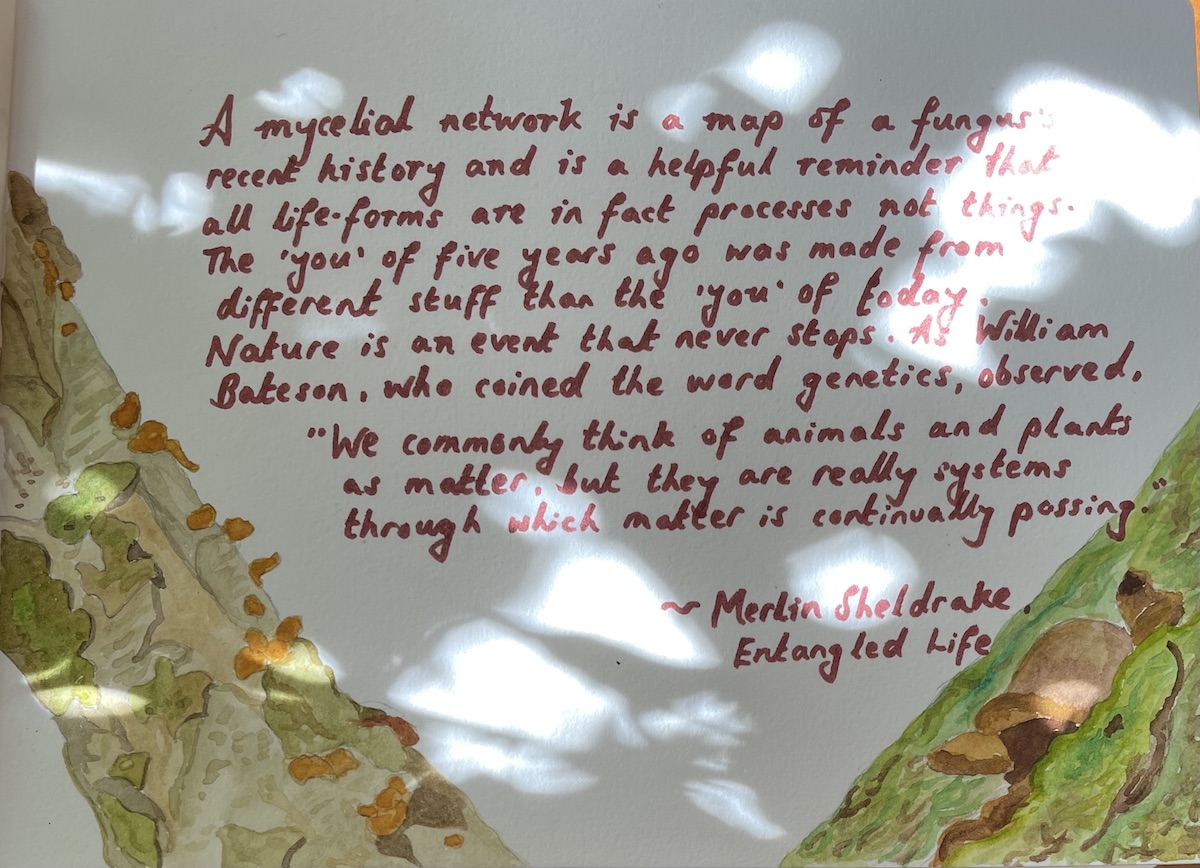 A mycelial network is a map of a fungus's
recent history and is a helpful reminder that
all life-forms are in fact processes not things.
The 'you' of five years ago was made from
different stuff than the 'you' of today.
Nature is an event that never stops. As William
Bateson, who coined the word genetics, observed,
"We commonly think of animals and plants
as matter, but they are really systems
through which matter is continually passing."
~ Merlin Sheldrake,
Entangled Life